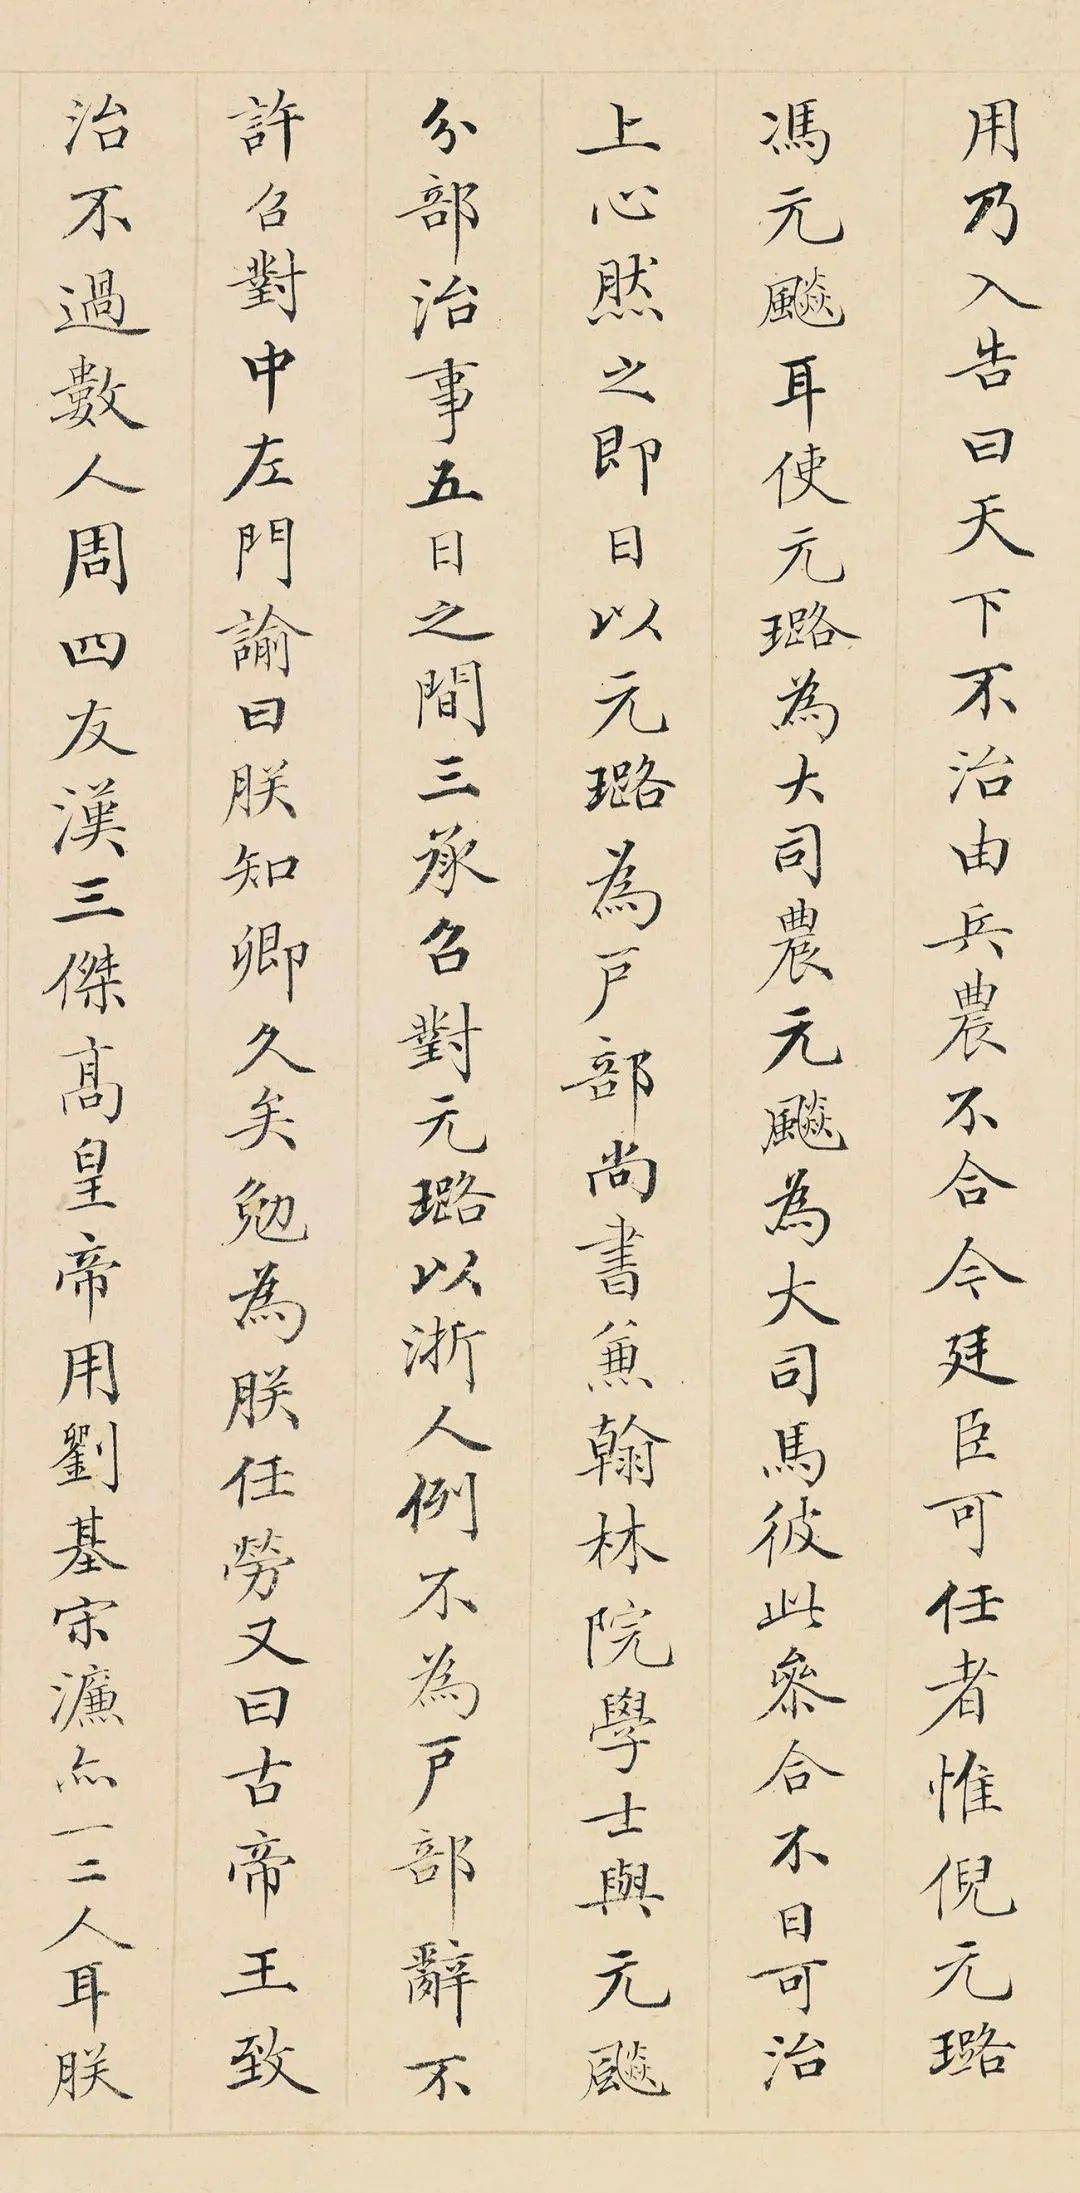 用乃入告曰天下不治由兵農不合今廷臣可任者惟倪元璐
馮元飈耳使元璐為大司農元飈為大司馬彼此叅合不日可治
上心然之即日以元璐為戸部尚書蒹翰林院學士與元飈
分部治事五日之間三承召對元璐以浙人例不為戸部辭不
許召對中左門諭曰朕知卿久矣勉為朕任勞又曰古帝王致
治不過數人周四友漢三傑髙皇帝用劉基宋濂亦一二人耳朕